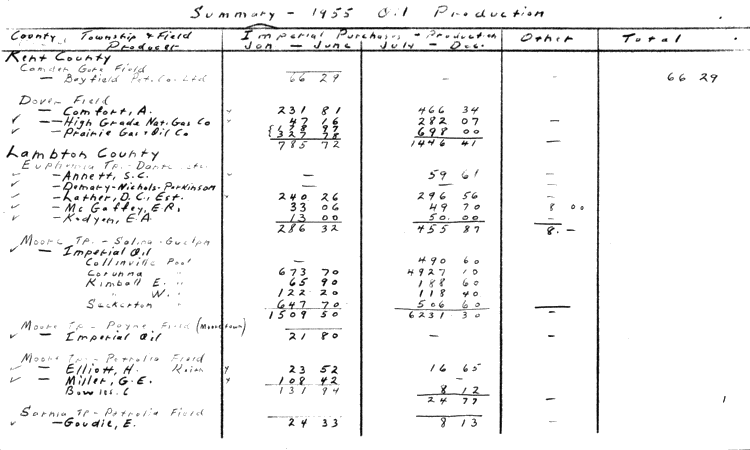 Summary - 1955 Oil Production
County, Township & Field Imperial Purchases - Production Other Total
Producer Jan - June July - Dec.
Kent County
Camden Gore Field
- Bayfield Pet. Co. Ltd 66 29 - - 66 29
Dover Field
- Comfort, A. 231 81 466 34
- High Grade Nat. Gas Co 47 16 282 07 -
- Prairie Gas & Oil Co 327 78 698 00 -
785 72 1446 41
Lambton County
Euphemia Tp. -
- Annett, S.C. - 59 61 -
- Demary-Nichols-Parkinson - - -
- Lather, D.C., Est. 240 26 296 56 -
- McGaffey, E.R. 33 06 49 70 8 00
- Kedyen, E.A. 13 00 50.00 -
286 32 455 87 8. -
Moore Tp. - Salina-Guelph
- Imperial Oil
Collinville Pool - 490 60
Corunna " 673 70 4927 10
Kimball E. " 65 90 188 60
" W. " 122 20 118 40
Seckerton " 647 70 506 60 -
1509 50 6231 30
Moore Tp - Payne Field (Mooretown)
- Imperial Oil 21 80 - -
Moore Tp. - Petrolia Field
- Elliott, H. Keith 23 52 16 65
- Miller, G.E. 108 42 -
Bowles. C 8 12
131 94 24 77 -
Sarnia TP - Petrolia Field
- Goudie, E. 24 33 8 13 -